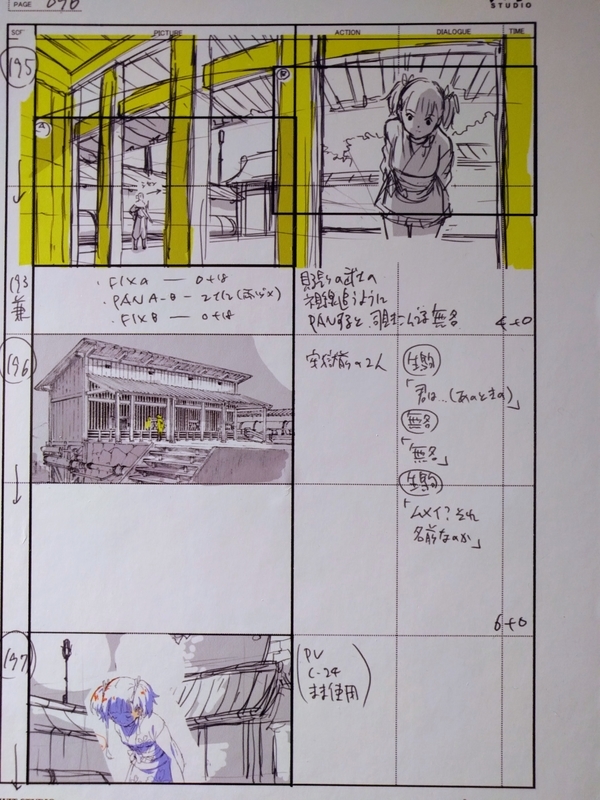 PAGE 090
STUDIO
PICTURE
ACTION
DIALOGUE
TIME
195
A
B
193
兼
・FIX A — 0+18
・PAN A-B —
・FIX B — 0+18
見張りの武士の
視線追うように
PANすると
無名
4+0
196
の2人
生駒
「君は‥(あのときの)」
無名
「無名」
生駒
「ムメイ?それ
名前なのか」
6+0
197
PV
C-24
まま使用